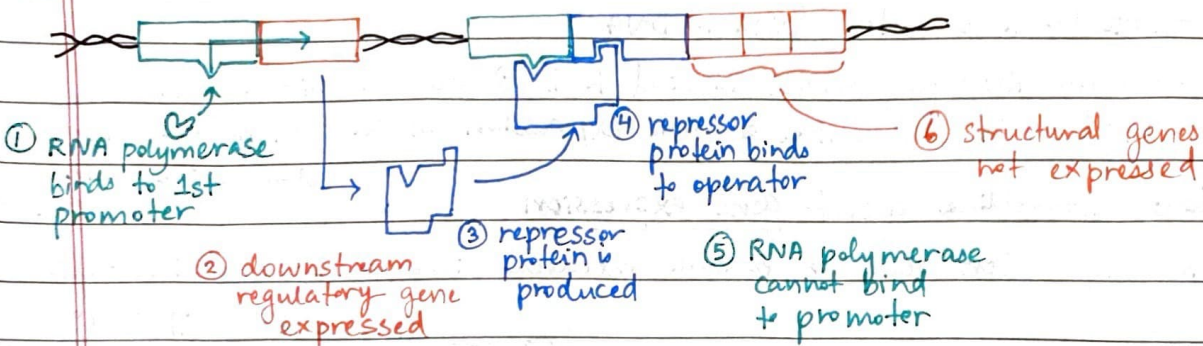 ① RNA polymerase
binds to 1st
promoter
② downstream
regulatory gene
expressed
③ repressor
protein is
produced
④ repressor
protein binds
to operator
⑤ RNA polymerase
cannot bind
to promoter
⑥ structural genes
not expressed